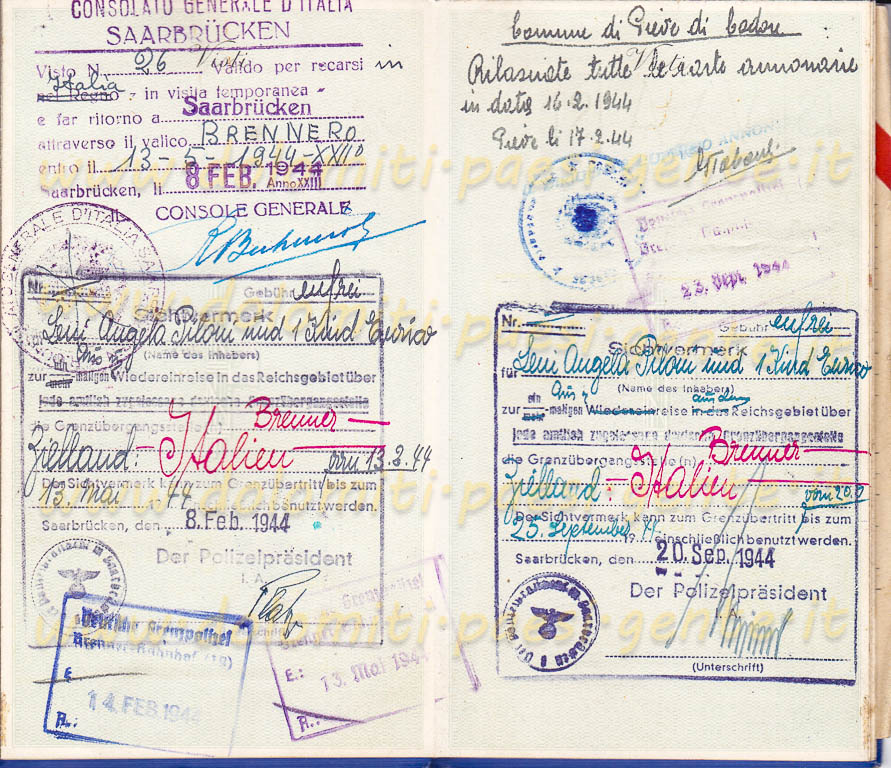 CONSOLATO GENERALE D'ITALIA
SAARBRÜCKEN
Visto N. 26 Valido per recarsi in
Italia
nel Regno - in visita temporanea -
e far ritorno a Saarbrücken
attraverso il valico BRENNERO
entro il 13-5-1944-XXII°
Saarbrücken, li 8 FEB. 1944
Anno XXII
IL CONSOLE GENERALE
Nr. Gebühr enfrei
Sichtvermerk
für Leni Angela Piloni und 1 Kind Enrico
(Name des Inhabers)
zur ein -maligen Wiedereinreise in das Reichsgebiet über
jede amtlich zugelassene deutsche Grenzübergangsstelle
die Grenzübergangsstelle(n) Brenner
Zielland:- Italien vom 13.2.44
Der Sichtvermerk kann zum Grenzübertritt bis zum
13. Mai 44 einschließlich benutzt werden.
Saarbrücken, den 8. Feb. 1944
Der Polizeipräsident
I. A.
Deutsche Grenzpolizei
Brenner-Bahnhof (18)
E.:
14. FEB. 1944
A.:
Grenzpolizei
E.: 13. Mai 1944
A.:
Comune di Pieve di Cadore
Rilasciate tutte le carte annonarie
in data 16.2.1944
Pieve li 17.2.44
Deutsche Grenzpolizei
23. Sept. 1944
Nr. Gebühr enfrei
Sichtvermerk
für Leni Angela Piloni und 1 Kind Enrico
(Name des Inhabers)
ein Aus- aus dem
zur -maligen Wiedereinreise in das Reichsgebiet über
jede amtlich zugelassene deutsche Grenzübergangsstelle
die Grenzübergangsstelle(n) Brenner
Zielland:- Italien vom 20.9
Der Sichtvermerk kann zum Grenzübertritt bis zum
25. September 44 einschließlich benutzt werden.
Saarbrücken, den 20. Sep. 1944
Der Polizeipräsident
(Unterschrift)
www.dolomiti-paesi-gente.it